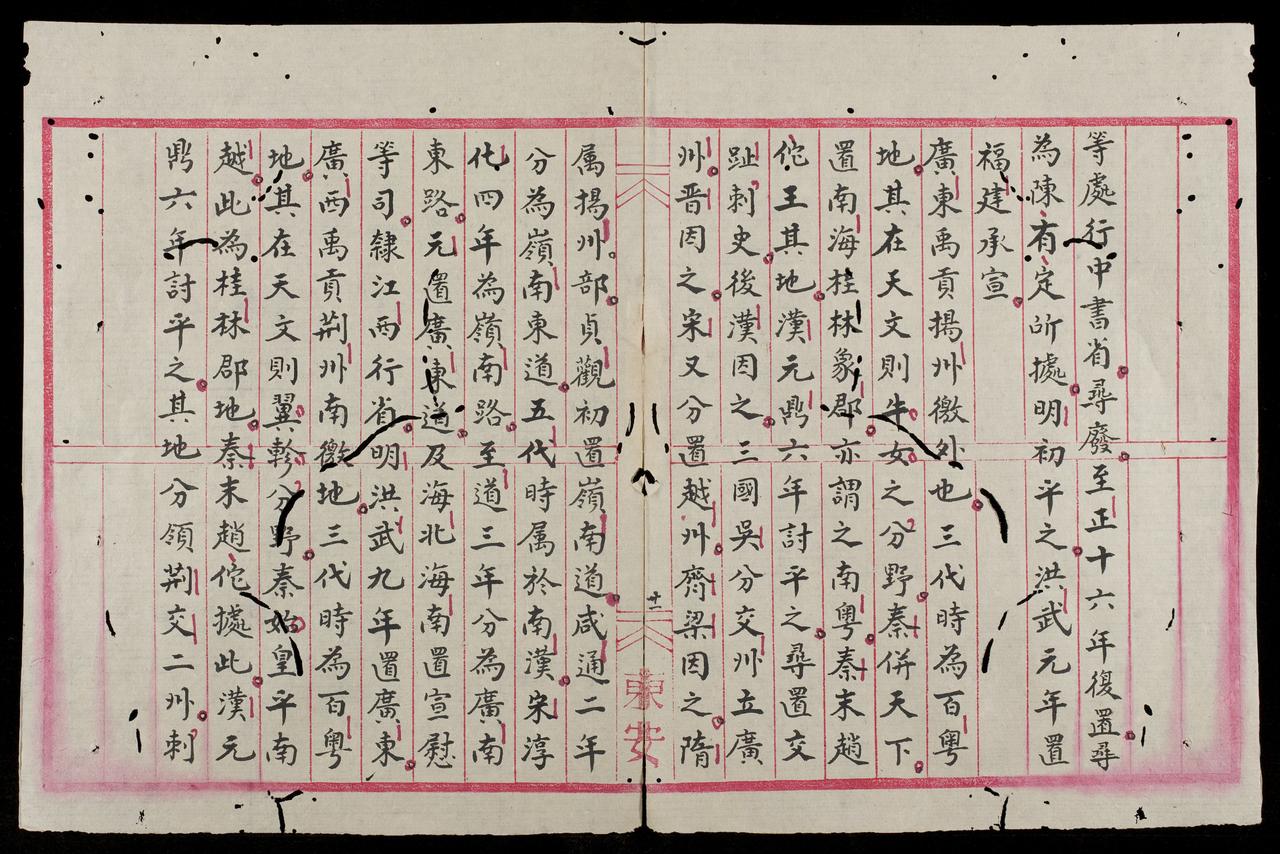 等處行中書省尋廢至正十六年復置尋
為陳有定所據明初平之洪武元年置
福建承宣
廣東禹貢揚州徼外也三代時為百粵
地其在天文則牛女之分野秦併天下
置南海桂林象郡亦謂之南粵秦末趙
佗王其地漢元鼎六年討平之尋置交
趾刺史後漢因之三國吳分交州立廣
州晋因之宋又分置越州齊梁因之隋
十一
東安
属揚州部貞觀初置嶺南道咸通二年
分為嶺南東道五代時属於南漢宋淳
化四年為嶺南路至道三年分為廣南
東路元置廣東道及海北海南置宣慰
等司隸江西行省明洪武九年置廣東
廣西禹貢荆州南徼地三代時為百粵
地其在天文則翼軫分野秦始皇平南
越此為桂林郡地秦末趙佗據此漢元
鼎六年討平之其地分領荆交二州刺